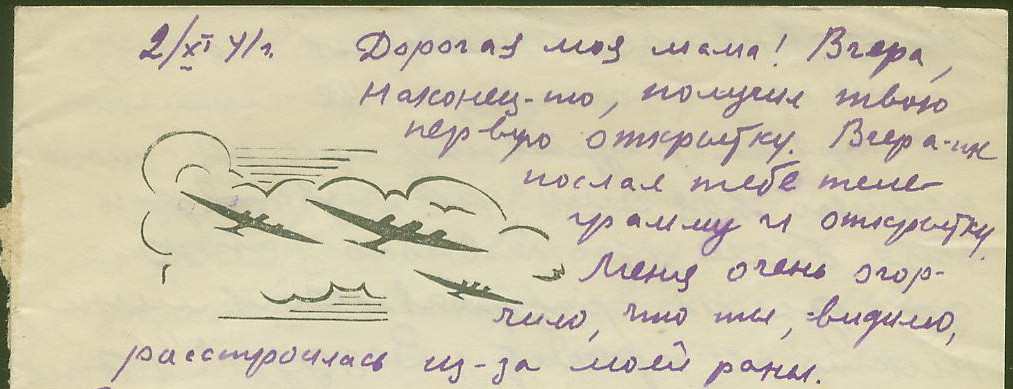 2/XI 41 г. Дорогая моя мама! Вчера,
наконец-то, получил твою
первую открытку. Вчера-же
послал тебе теле-
грамму и открытку.
Меня очень огор-
чило, что ты, видимо,
расстроилась из-за моей раны.